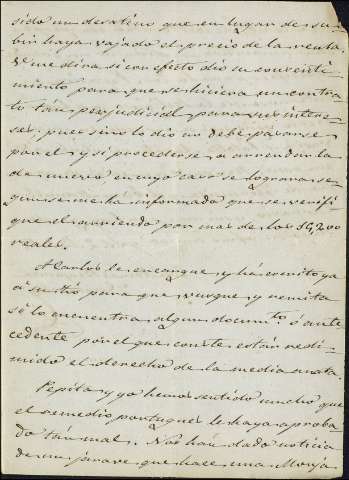 sido un desatino que en lugar de su-
bir haya vajado el precio de la renta.
V. me dira si con efecto dio su consenti-
miento para que se hiciera un contra-
to tán perjudicial para sus intere-
ses, pues si no lo dio no debe pasarse
por el y si procederse a arrendarla
de nuevo en cuyo caso se lograra se-
gun se me ha informado que se verifi-
que el arriendo por mas de los 16,200
reales.
A Carlos le encargue y há escrito ya
á su tio para que vusque y remita
si lo encuentra algun documto. ó ante
cedente por el que conste están redi-
mido el derecho de la media anata.
Pepita y yo hemos sentido mucho que
el remedio portugues le haya aproba
do tán mal. Nos han dado noticia
de un jarave que hace una Monja